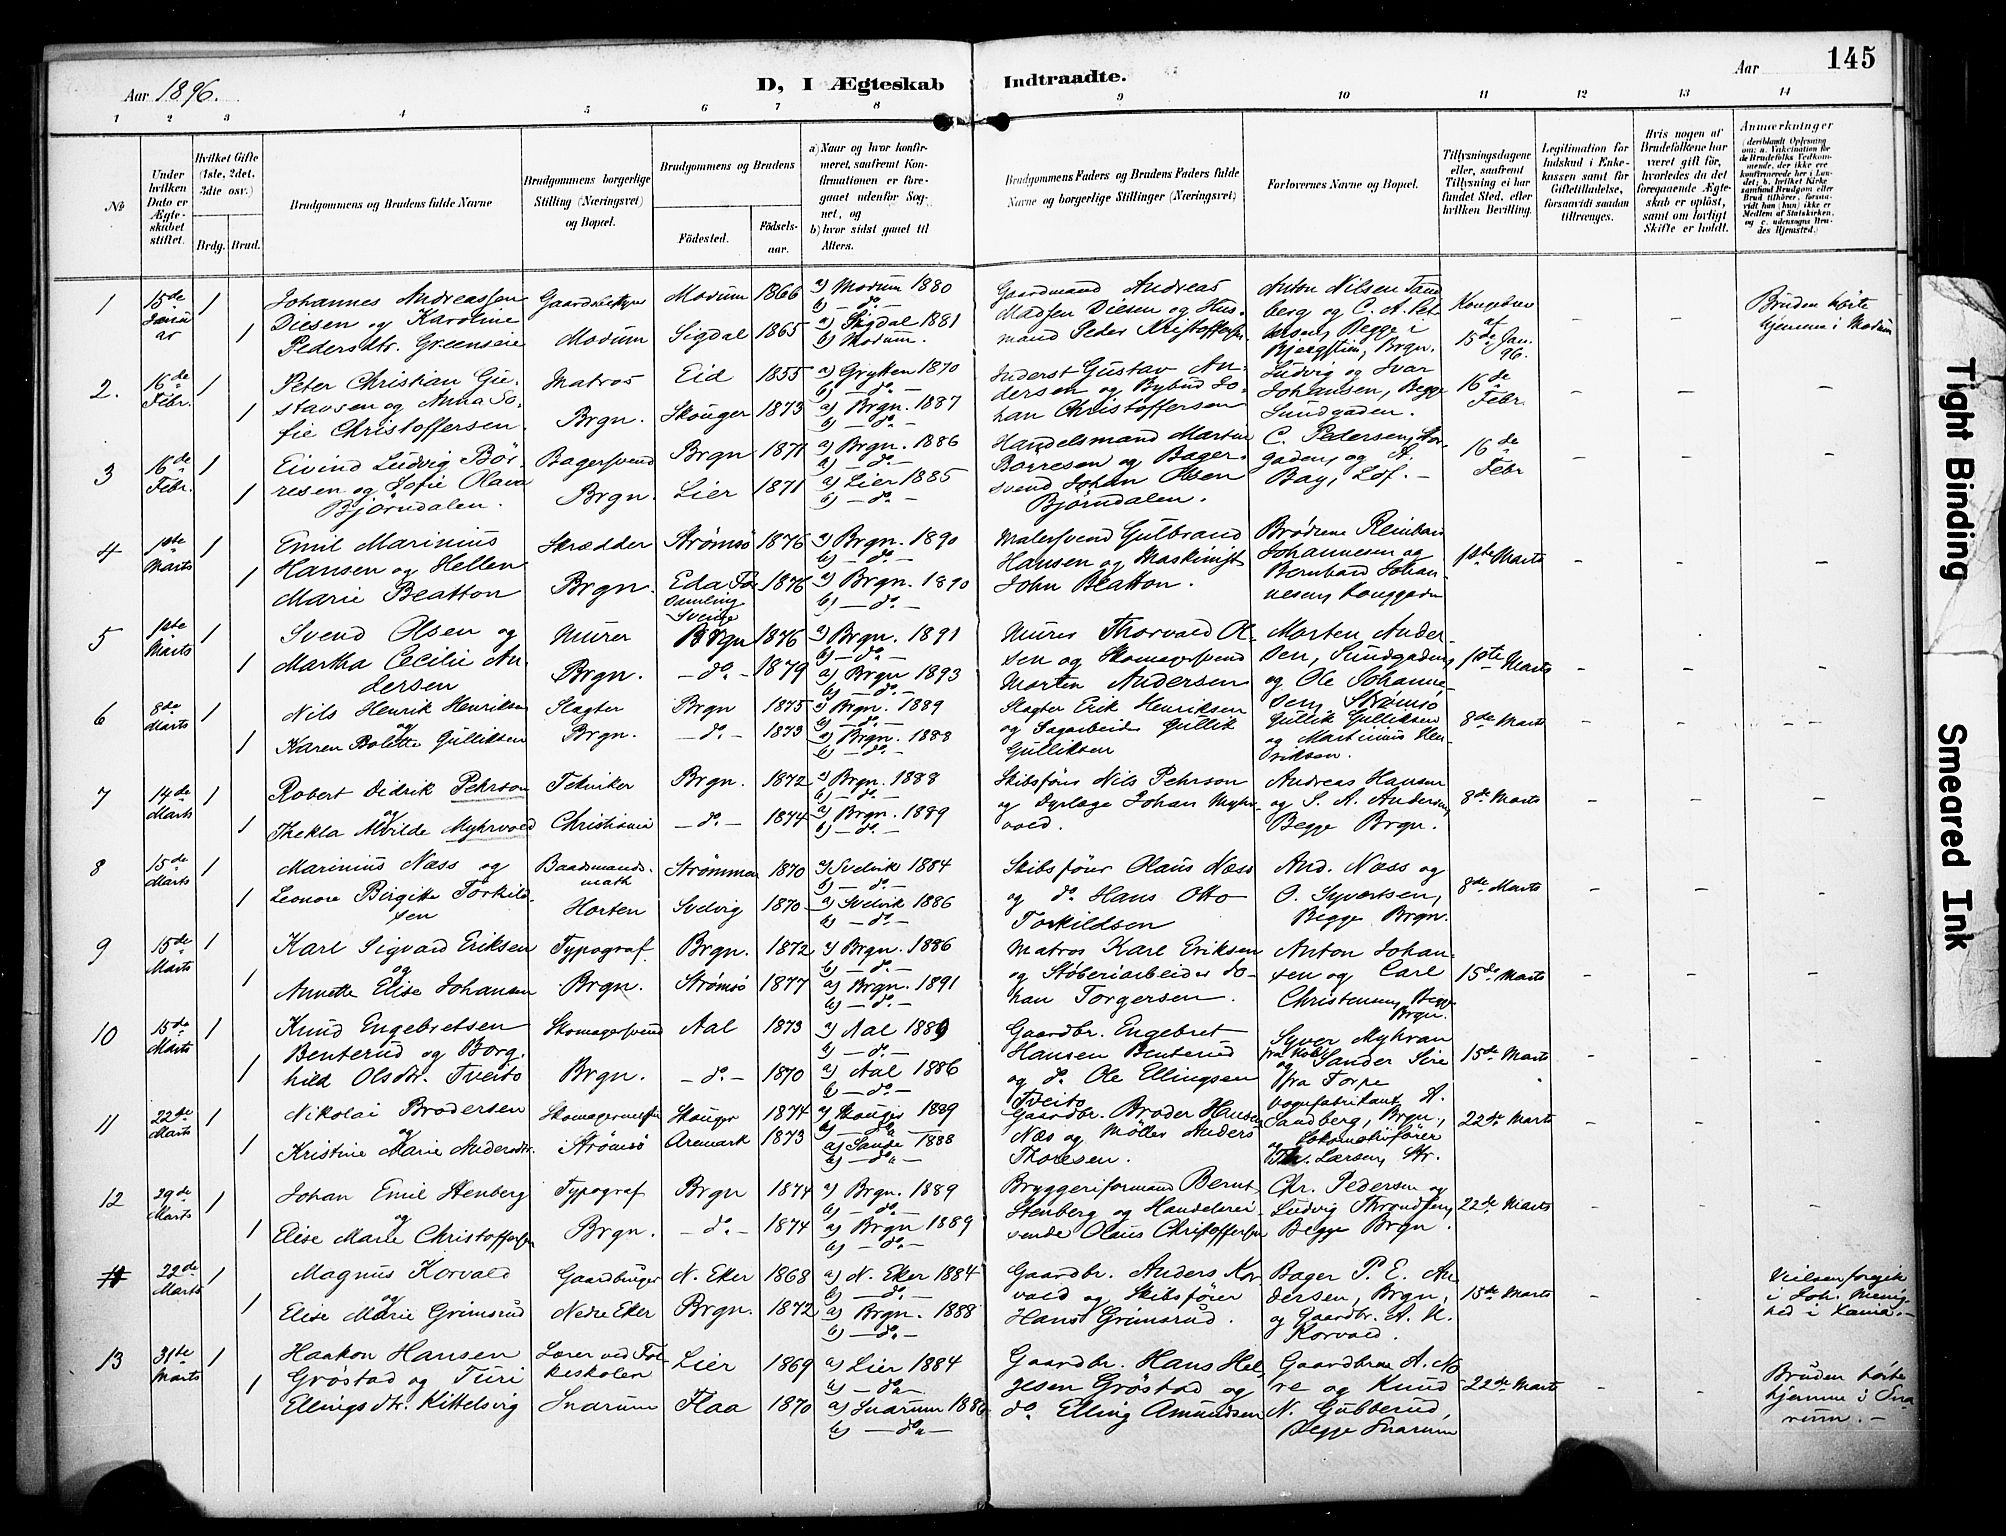 145
Aar 1896.
D, I Ægteskab Indtraadte.
Aar
1 2 3 4 5 6 7 8 9 10 11 12 13 14
№
Under hvilken Dato er Ægteskabet stiftet.
Hvilket Gifte (1ste, 2det, 3die osv.)
Brdg. Brud.
Brudgommens og Brudens fulde Navne
Brudgommens borgerlige Stilling (Næringsvei) og Bopæl.
Brudgommens og Brudens
Födested.
Födselsaar.
a) Naar og hvor konfirmeret, saafremt Konfirmationen er foregaaet udenfor Sognet, og
b) hvor sidst gaaet til Alters.
Brudgommens Faders og Brudens Faders fulde Navne og borgerlige Stillinger (Næringsvei)
Forlovernes Navne og Bopæl.
Tillysningsdagene eller, saafremt Tillysning ei har fundet Sted, efter hvilken Bevilling.
Legitimation for Indskud i Enkekassen samt for Giftetilladelse, forsaavidt saadan tiltrænges.
Hvis nogen af Brudefolkene har været gift før, hvorledes da det foregaaende Ægteskab er oplöst, samt om lovligt Skifte er holdt.
Anmærkninger
1 15de Januar 1 Johannes Andreassen Gaardsbestyrer Modum 1866 a) Modum 1880 Gaardmand Andreas Anton Nilsen Sandberg og C. A. Pet Kongebrev af 15de Jan. 96. - - Bruden hørte hjemme i Modum
1 Diesen og Karoline Pedersdtr. Greenseie Modum Sigdal 1865 b) - do - a) Sigdal 1881 b) Modum. Madsen Diesen og Husmand Peder Kristoffersen Begge i Brgn.
2. 16de Febr. 1 Peter Christian Gu- Matros Eid 1855 a) Grytten 1870 Inderst Gustav An- Ludvig og Ivar 16de Febr. - - -
1 stavsen og Anna So- fie Christoffersen. Brgn. Skouger 1873 b) - do - a) Brgn. 1887 b) - do - dersen og Bybud Jo- han Christoffersen Johansen, Begge Sundgaden.
3 16de Febr. 1 Eivind Ludvig Bör- Bagersvend Brgn 1871 a) Brgn. 1886 Handelsmand Martin C. Pedersen, 16de Febr - - -
1 resen og Sofie Olava Bjørndalen. Brgn. Lier 1871 a) - do - a) Lier 1885 b) - do - Börresen og Bager- svend Johan Olsen Bjørndalen. gaden, og A. Bay, Löf. -
4 1ste Marts 1 Emil Marinius Skrædder Strømsø 1876 a) Brgn. 1890 Malersvend Gulbrand Brødrene Reinhard 1ste Marts - - -
1 Hansen og Hellen Marie Beatton Brgn. Eda Forsamling Sverige 1876 b) - do - a) Brgn. 1890 b) - do - Hansen og Maskinist John Beatton. Johannesen og Bernhard Johan- nesen, Langgaden
5 1ste Marts 1 Svend Olsen og Murer Brgn 1876 a) Brgn. 1891 Murer Thorvald Ol- Morten Ander- 1ste Marts - - -
1 Martha Cecilie An- dersen Brgn. - do - 1879 b) - do - a) Brgn 1893 b) - do - sen og Skomagersvend Morten Andersen sen, Sundgaden, og Ole Johanne- sen, Strømsø
6 8de Marts 1 Nils Henrik Henriksen Slagter Brgn 1875 a) Brgn. 1889 Slagter Erik Henriksen Gullik Gulliksen 8de Marts - - -
1 og Karen Bolette Gulliksen Brgn. - do - 1873 b) - do - a) Brgn. 1888 b) - do - og Sagarbeider Gullik Gulliksen og Martinius Hen- riksen.
7 14de Marts 1 Robert Didrik Pehrson Tekniker Brgn. 1872 a) Brgn. 1888 Skibsfører Nils Pehrson Andreas Hansen 8de Marts - - -
1 og Thekla Alvilde Myhrvold Christiania - do - 1874 b) - do - a) Brgn. 1889 b) - do - og Dyrlæge Johan Myhr- vold. og S. A. Andersen, Begge Brgn.
8 15de Marts 1 Marinius Næss og Baadsmands- math Strømmen 1870 a) Svelvik 1884 Skibsfører Olaus Næss And. Næss og 8de Marts - - -
1 Leonore Birgitte Torkild- sen Horten Svelvig 1870 b) - do - a) Svelvik 1886 b) - do - og do Hans Otto Torkildsen O. Syvertsen, Begge Brgn.
9 15de Marts 1 Karl Sigvard Eriksen Typograf Brgn. 1872 a) Brgn. 1886 Matros Karl Eriksen Anton Johan- 15de Marts - - -
1 og Annette Elise Johansen Brgn. Strømsø 1877 b) - do - a) Brgn. 1891 b) - do - og Støberiarbeider Jo- han Torgersen. sen og Carl Christensen, Begge Brgn.
10 15de Marts 1 Knud Engebretsen Skomagersvend Aal 1873 a) Aal 1889 Gaardbr. Engebret Syver Myhran 15de Marts - - -
1 Benterud og Borg- hild Olsdtr. Tveito Brgn. - do - 1870 b) - do - a) Aal 1886 b) - do - Hansen Benterud og do Ole Ellingsen Tveito fra og Sander Sire fra Torpe
11 22de Marts 1 Nikolai Brodersen Skomagermester Skouger 1874 a) Skouger 1889 Gaardbr. Broder Hansen Vognfabrikant A. 22de Marts - - -
1 og Kristine Marie Andersdtr. Strømsö Aremark 1873 b) - do - a) Sande 1888 b) - do - Næs og Møller Anders Thoresen. Sandberg, Brgn., og Lokomotivfører Th. Larsen, Str.
12 29de Marts 1 Johan Emil Stenberg Typograf Brgn 1874 a) Brgn. 1889 Bryggeriformand Bernt Chr. Pedersen og 22de Marts - - -
1 og Elise Marie Christoffersen Brgn. - do - 1874 b) - do - a) Brgn 1889 b) - do - Stenberg og Handelsrei- sende Olaus Christoffersen Ludvig Throndsen, Begge Brgn.
29de Marts 1 Magnus Korvald Gaardbruger N. Eker 1868 a) N. Eker 1884 Gaardbr. Anders Kor- Bager P. E. An 15de Marts - - Vielsen foregik
1 og Elise Marie Grimsrud Nedre Eker Brgn. 1872 b) - do - a) Brgn. 1888 b) - do - vald og Skibsfører Hans Grimsrud. dersen, Brgn., og Gaardbr. A. K. Korvald. i Joh. Menig- hed i Xania. -
13 31te Marts 1 Haakon Hansen Lærer ved Fol- keskolen Lier 1869 a) Lier 1884 Gaardbr. Hans Hel- Gaardbrne A. No 22de Marts - - Bruden hørte
1 Grøstad og Turi Ellingsdtr. Kittelsvig Snarum Flaa 1870 b) - do - a) Snarum 1886 b) - do - gesen Grøstad og do. Elling Amundsen re og Knud N. Gubberud, Begge Snarum hjemme i Sna rum. -
Tight Binding
Smeared Ink